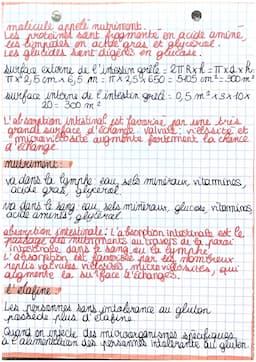 molécule appelé nutriment.
Les protéines sont fragmenté en acide aminé,
les limpides en acide gras et glycérol.
Les glucides sont digérés en glucose.
surface externe de l'intestin grêle = 2πR×h = π×d×h
π × 2,5 cm × 6,5 m = π × 2,5 × 650 = 5105 cm² = 300 m²
surface interne de l'intestin grêle = 0,5 m² × 3 × 10 ×
20 = 300 m²
L'absorption intestinal est favorisé par une très
grand surface d'échange. valvule, villosité et
microvillosité augmente fortement la chance
d'échange.
nutriment :
va dans la lymphe eau, sels minéraux, vitamines,
acide gras, glycérol.
va dans le sang eau, sels minéraux, glucose, vitamines,
acide aminés, glycérol.
absorption intestinale : L'absorption intestinale est le
passage des nutriments au travers de la paroi
intestinale dans le sang ou la lymphe.
L'absorption est favorisée par les nombreux
replis valvules villosités, microvillosités, qui
augmente la surface d'échange.
l'élafine :
Les personnes sans intolérance au gluten
possède plus d'élafine.
Quand on injecte des microorganismes spécifiques
à l'alimentation des personnes intolérante au gluten